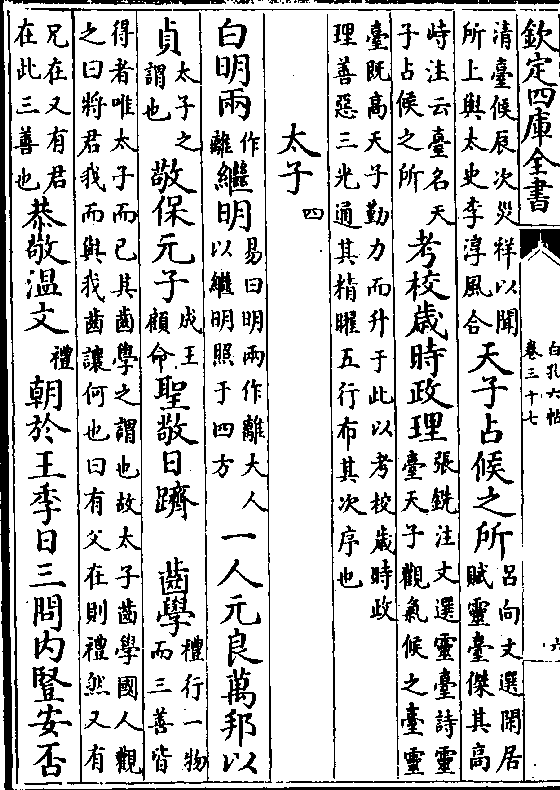 欽定四庫全書
白孔六帖
卷三十七
六
清臺候辰次災祥以聞
所上與太史李淳風合
天子占候之所
呂向文選閑居
賦靈臺傑其高
峙注云臺名天
子占候之所
考校歲時政理
張銑注文選靈臺詩靈
臺天子觀氣候之臺靈
臺既高天子勤力而升于此以考校歲時政
理善惡三光通其精曜五行布其次序也
太子
四
白
明兩
作
離
繼明
易曰明兩作離大人
以繼明照于四方
一人元良萬邦以
貞
太子之
謂也
敬保元子
成王
顧命
聖敬日躋
齒學
禮行一物
而三善皆
得者唯太子而已其齒學之謂也故太子齒學國人觀
之曰將君我而與我齒讓何也曰有父在則禮然又有
兄在又有君
在此三善也
恭敬溫文
禮
朝於王季日三問内豎安否